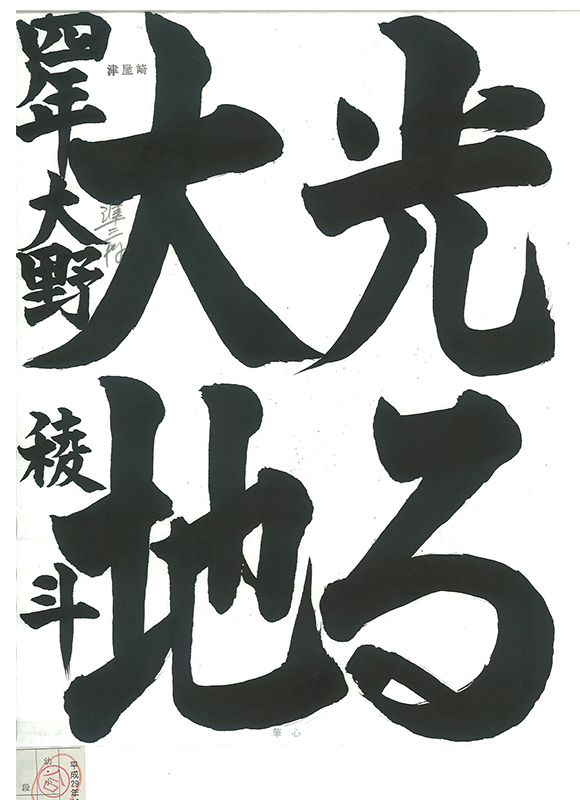 光る
大地
四年 大野 稜斗
津屋崎
準三段
心筆
平成29年
幼
段